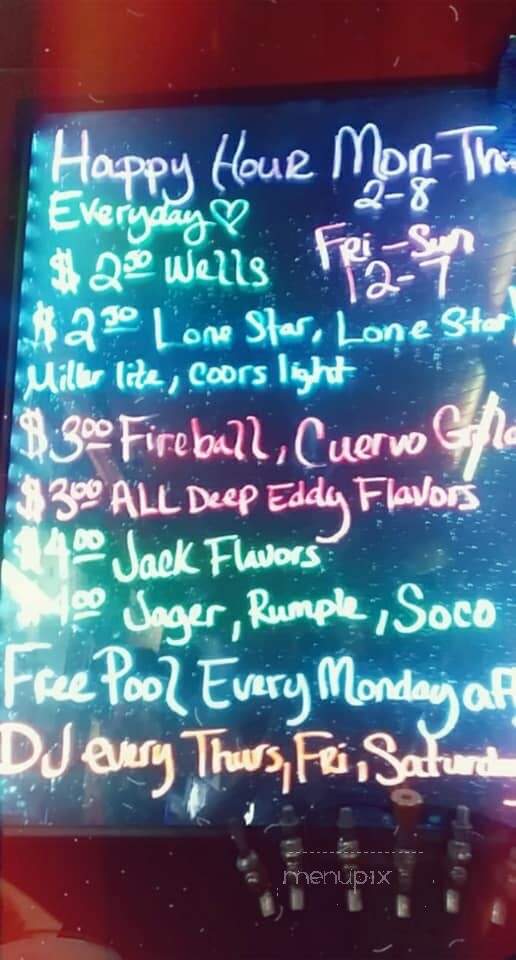 Happy Hour Mon-Th
Everyday 2-8
$2.50 Wells Fri-Sun
12-7
$2.50 Lone Star, Lone Star
Miller lite, coors light
$3.00 Fireball, Cuervo
$3.00 ALL Deep Eddy Flavors
$4.00 Jack Flavors
$4.00 Jager, Rumple, Soco
Free Pool Every Monday aft
DJ every Thurs, Fri, Saturda
menupix